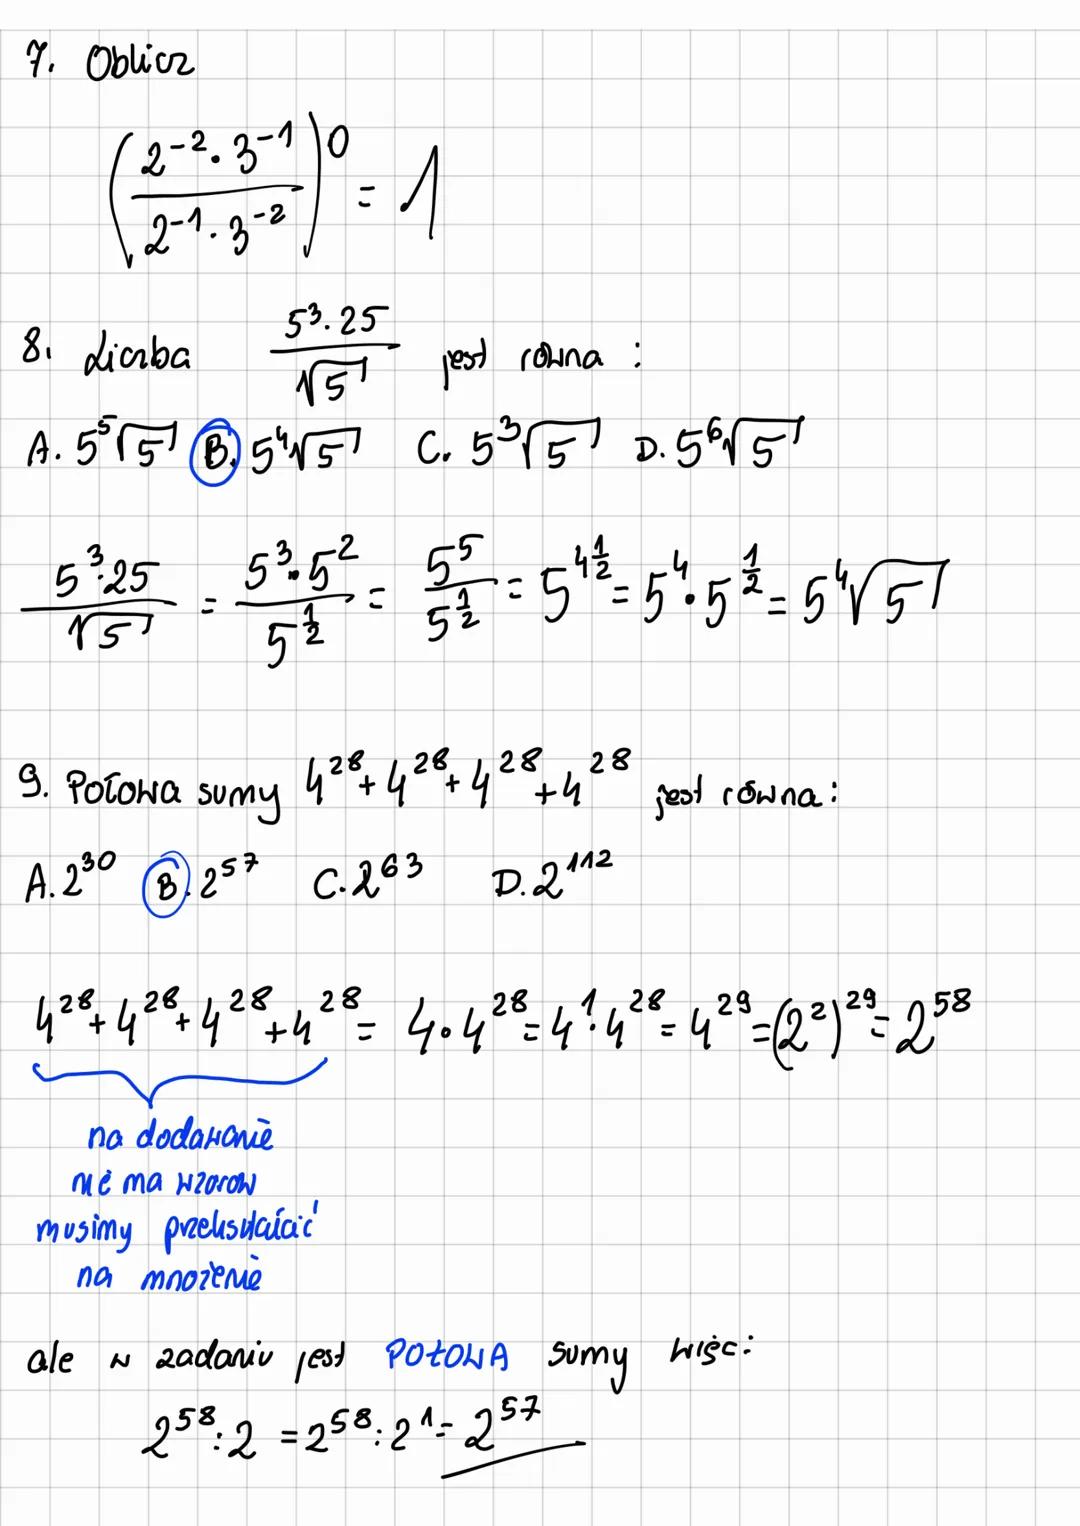 7. Oblicz
(2⁻² · 3⁻¹ / 2⁻¹ · 3⁻²)⁰ = 1
8. Liczba 5³ · 25 / √5 jest równa :
A. 5⁵√5 B. 5⁴√5 C. 5³√5 D. 5⁶√5
5³·25 / √5 = 5³·5² / 5^½ = 5⁵ / 5^½ = 5^4½ = 5⁴ · 5^½ = 5⁴√5
9. Połowa sumy 4²⁸ + 4²⁸ + 4²⁸ + 4²⁸ jest równa :
A. 2³⁰ B. 2⁵⁷ C. 2⁶³ D. 2¹¹²
4²⁸ + 4²⁸ + 4²⁸ + 4²⁸ = 4 · 4²⁸ = 4¹ · 4²⁸ = 4²⁹ = (2²)²⁹ = 2⁵⁸
na dodawanie
nie ma wzorów
musimy przekształcić
na mnożenie
ale w zadaniu jest POŁOWA sumy więc :
2⁵⁸ : 2 = 2⁵⁸ : 2¹ = 2⁵⁷